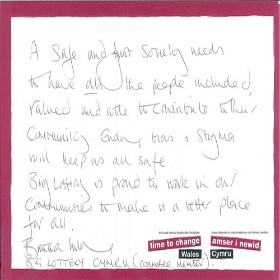 A Safe and Just Society needs
to have all the people included,
valued and able to contribute to their
Community. Ending bias & Stigma
will keep us all safe
Big Lottery is proud to work in our
Communities to make it a better place
for all.
BIG LOTTERY CYMRU (Committee Member).
time to change
Wales
amser i newid
Cymru